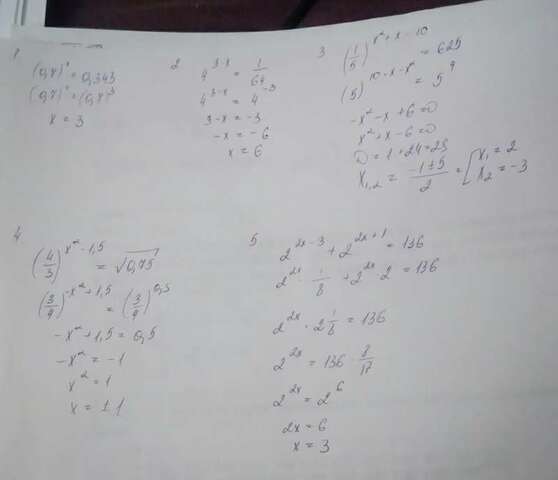 1
(0,7)ˣ = 0,343
(0,7)ˣ = (0,7)³
x = 3
2
4^(3-x) = 1/64
4^(3-x) = 4^(-3)
3-x = -3
-x = -6
x = 6
3
(1/5)^(x²+x-10) = 625
(5)^(10-x-x²) = 5⁴
-x²-x+6=0
x²+x-6=0
D = 1+24=25
x₁,₂ = (-1±5)/2 = [x₁ = 2
x₂ = -3
4
(4/3)^(x²-1,5) = √0,75
(3/4)^(-x²+1,5) = (3/4)^(0,5)
-x²+1,5=0,5
-x² = -1
x² = 1
x = ±1
5
2^(2x-3) + 2^(2x+1) = 136
2^(2x) · 1/8 + 2^(2x) · 2 = 136
2^(2x) · 2 1/8 = 136
2^(2x) = 136 · 8/17
2^(2x) = 2⁶
2x = 6
x = 3